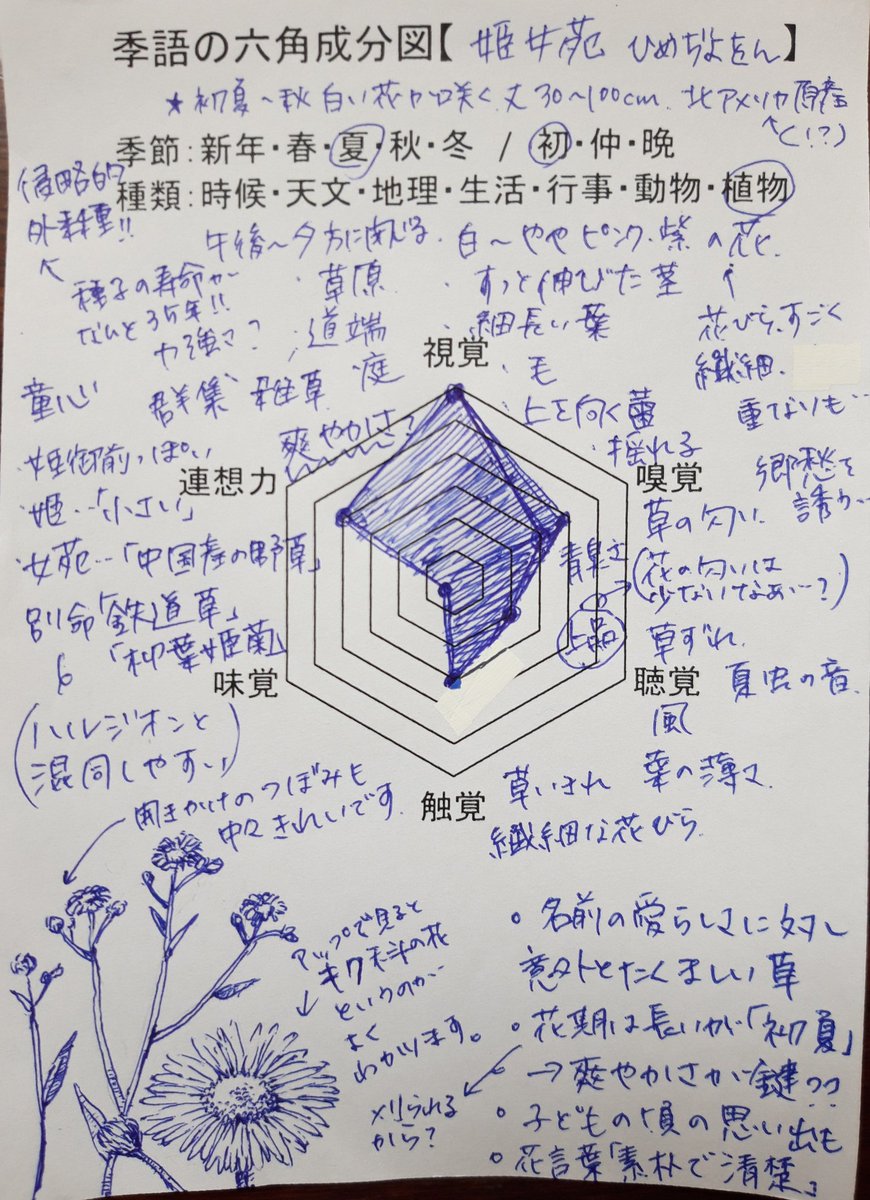 季語の六角成分図【姫女苑 ひめぢよをん】
★初夏～秋 白い花が咲く 丈30～100cm. 北アメリカ原産
(!?)
季節：新年・春・夏・秋・冬 / 初・仲・晩
種類：時候・天文・地理・生活・行事・動物・植物
侵略的
外来種!!
種子の寿命が
なんと35年!!
力強さ?
午後～夕方に閉じる
・草原
・道端
庭
・白～ややピンク・紫の花
・すっと伸びた茎
・細長い葉
・毛
・上を向く蕾
・揺れる
花びらすごく
繊細
重なりも…
視覚
童心
群集 雑草
爽やかさ?
姫御前っぽい
連想力
姫…「小さい」
女苑…「中国産の野草」
別命「鉄道草」
「柳葉姫菊」
(ハルジオンと
混同しやすい)
嗅覚
郷愁を
誘う…
草の匂い
青臭さ
(花の匂いは
少ないなあ…?)
上品
味覚
聴覚
草ずれ
夏虫の音
風
触覚
草いきれ 葉の薄さ
繊細な花びら
開きかけのつぼみも
中々きれいです
アップで見ると
キク科の花
というのが
よく
わかります。
・名前の愛らしさに対し
意外とたくましい草
・花期は長いが「初夏」
→爽やかさが鍵??
刈られる
から?
・子どもの頃の思い出も
・花言葉「素朴で清楚」